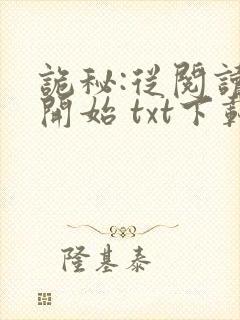 詭秘:從閱讀
開始 txt下載
隆基泰